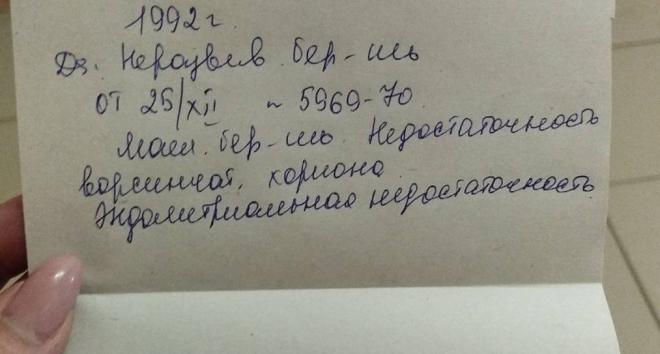 1992 г.
Ds. Неразвив. бер-ть
от 25/XII ~ 5969-70
Маш. бер-ть. Недостаточность
ворсинчат. хориона
Эндометриальная недостаточность